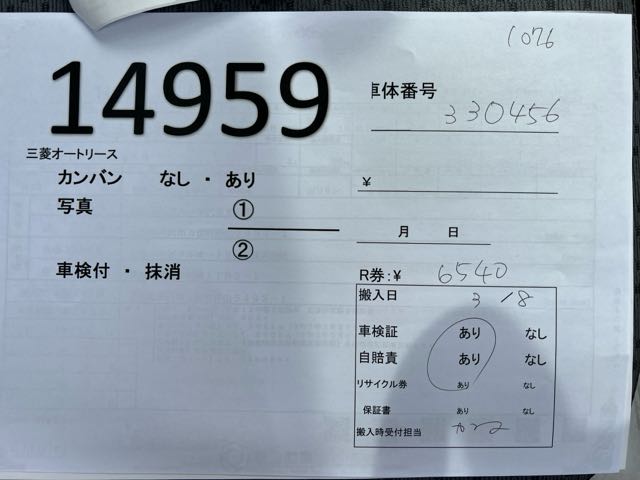 1076
14959
車体番号 330456
三菱オートリース
カンバン なし ・ あり
¥
写真 ①
②
月 日
車検付 ・ 抹消
R券:¥ 6540
搬入日 3 / 8
車検証 あり なし
自賠責 あり なし
リサイクル券 あり なし
保証書 あり なし
搬入時受付担当